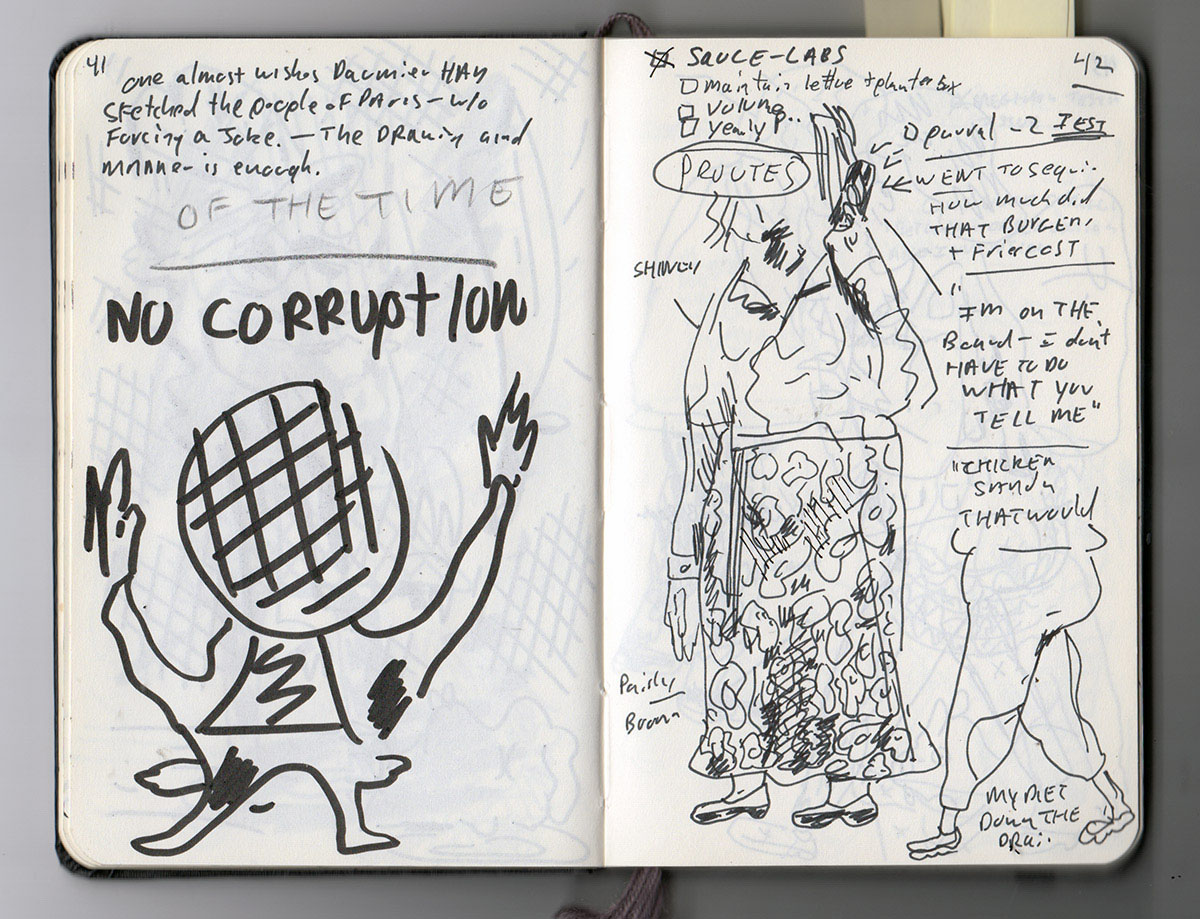 41
one almost wishes Daumier HAD
sketched the people of PARIS – w/o
Forcing a Joke. – The DRawing and
manner is enough.
OF THE TIME
NO CORRUPTION
42
SAUCE-LABS
maintain lettuce + planter box
Volume..
yearly
- 2 TEST
PROUTES
WENT TO
How much did
THAT BURGER,
+ Frier cost
SHINEY
"
I'm on THE
Board – I don't
HAVE TO DO
WHAT YOU
TELL ME"
"CHICKEN
THAT would
Paisley
Brown
MY DIET
Down THE
DRai..